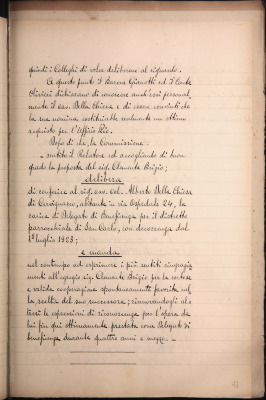 quindi i Colleghi di voler deliberare al riguardo.
A questo punto il Barone Gianotti ed il Conte
Olivieri dichiarano di conoscere anch'essi personal_
mente il cav. Della Chiesa e di essere convinti che
la sua nomina costituirebbe realmente un ottimo
acquisto per l'Ufficio Pio.
Dopo di che, la Commissione.
_ sentito il Relatore ed accogliendo di buon
grado la proposta del sig. Clemente Brigio;
delibera
di conferire al sig. cav. col. Alberto Della Chiesa
di Cervignasco, abitante in via Ospedale 24, la
carica di Delegato di Beneficenza per il distretto
parrocchiale di San Carlo, con decorrenza dal
1° luglio 1923;
e manda
nel contempo ad esprimere i più sentiti ringrazia_
menti all'egregio sig. Clemente Brigio per la cortese
e valida cooperazione spontaneamente favorita nel_
la scelta del suo successore; rinnovandogli al_
tresì le espressioni di riconoscenza per l'opera da
lui fin qui ottimamente prestata come Delegato di
beneficenza durante quattro anni e mezzo. _